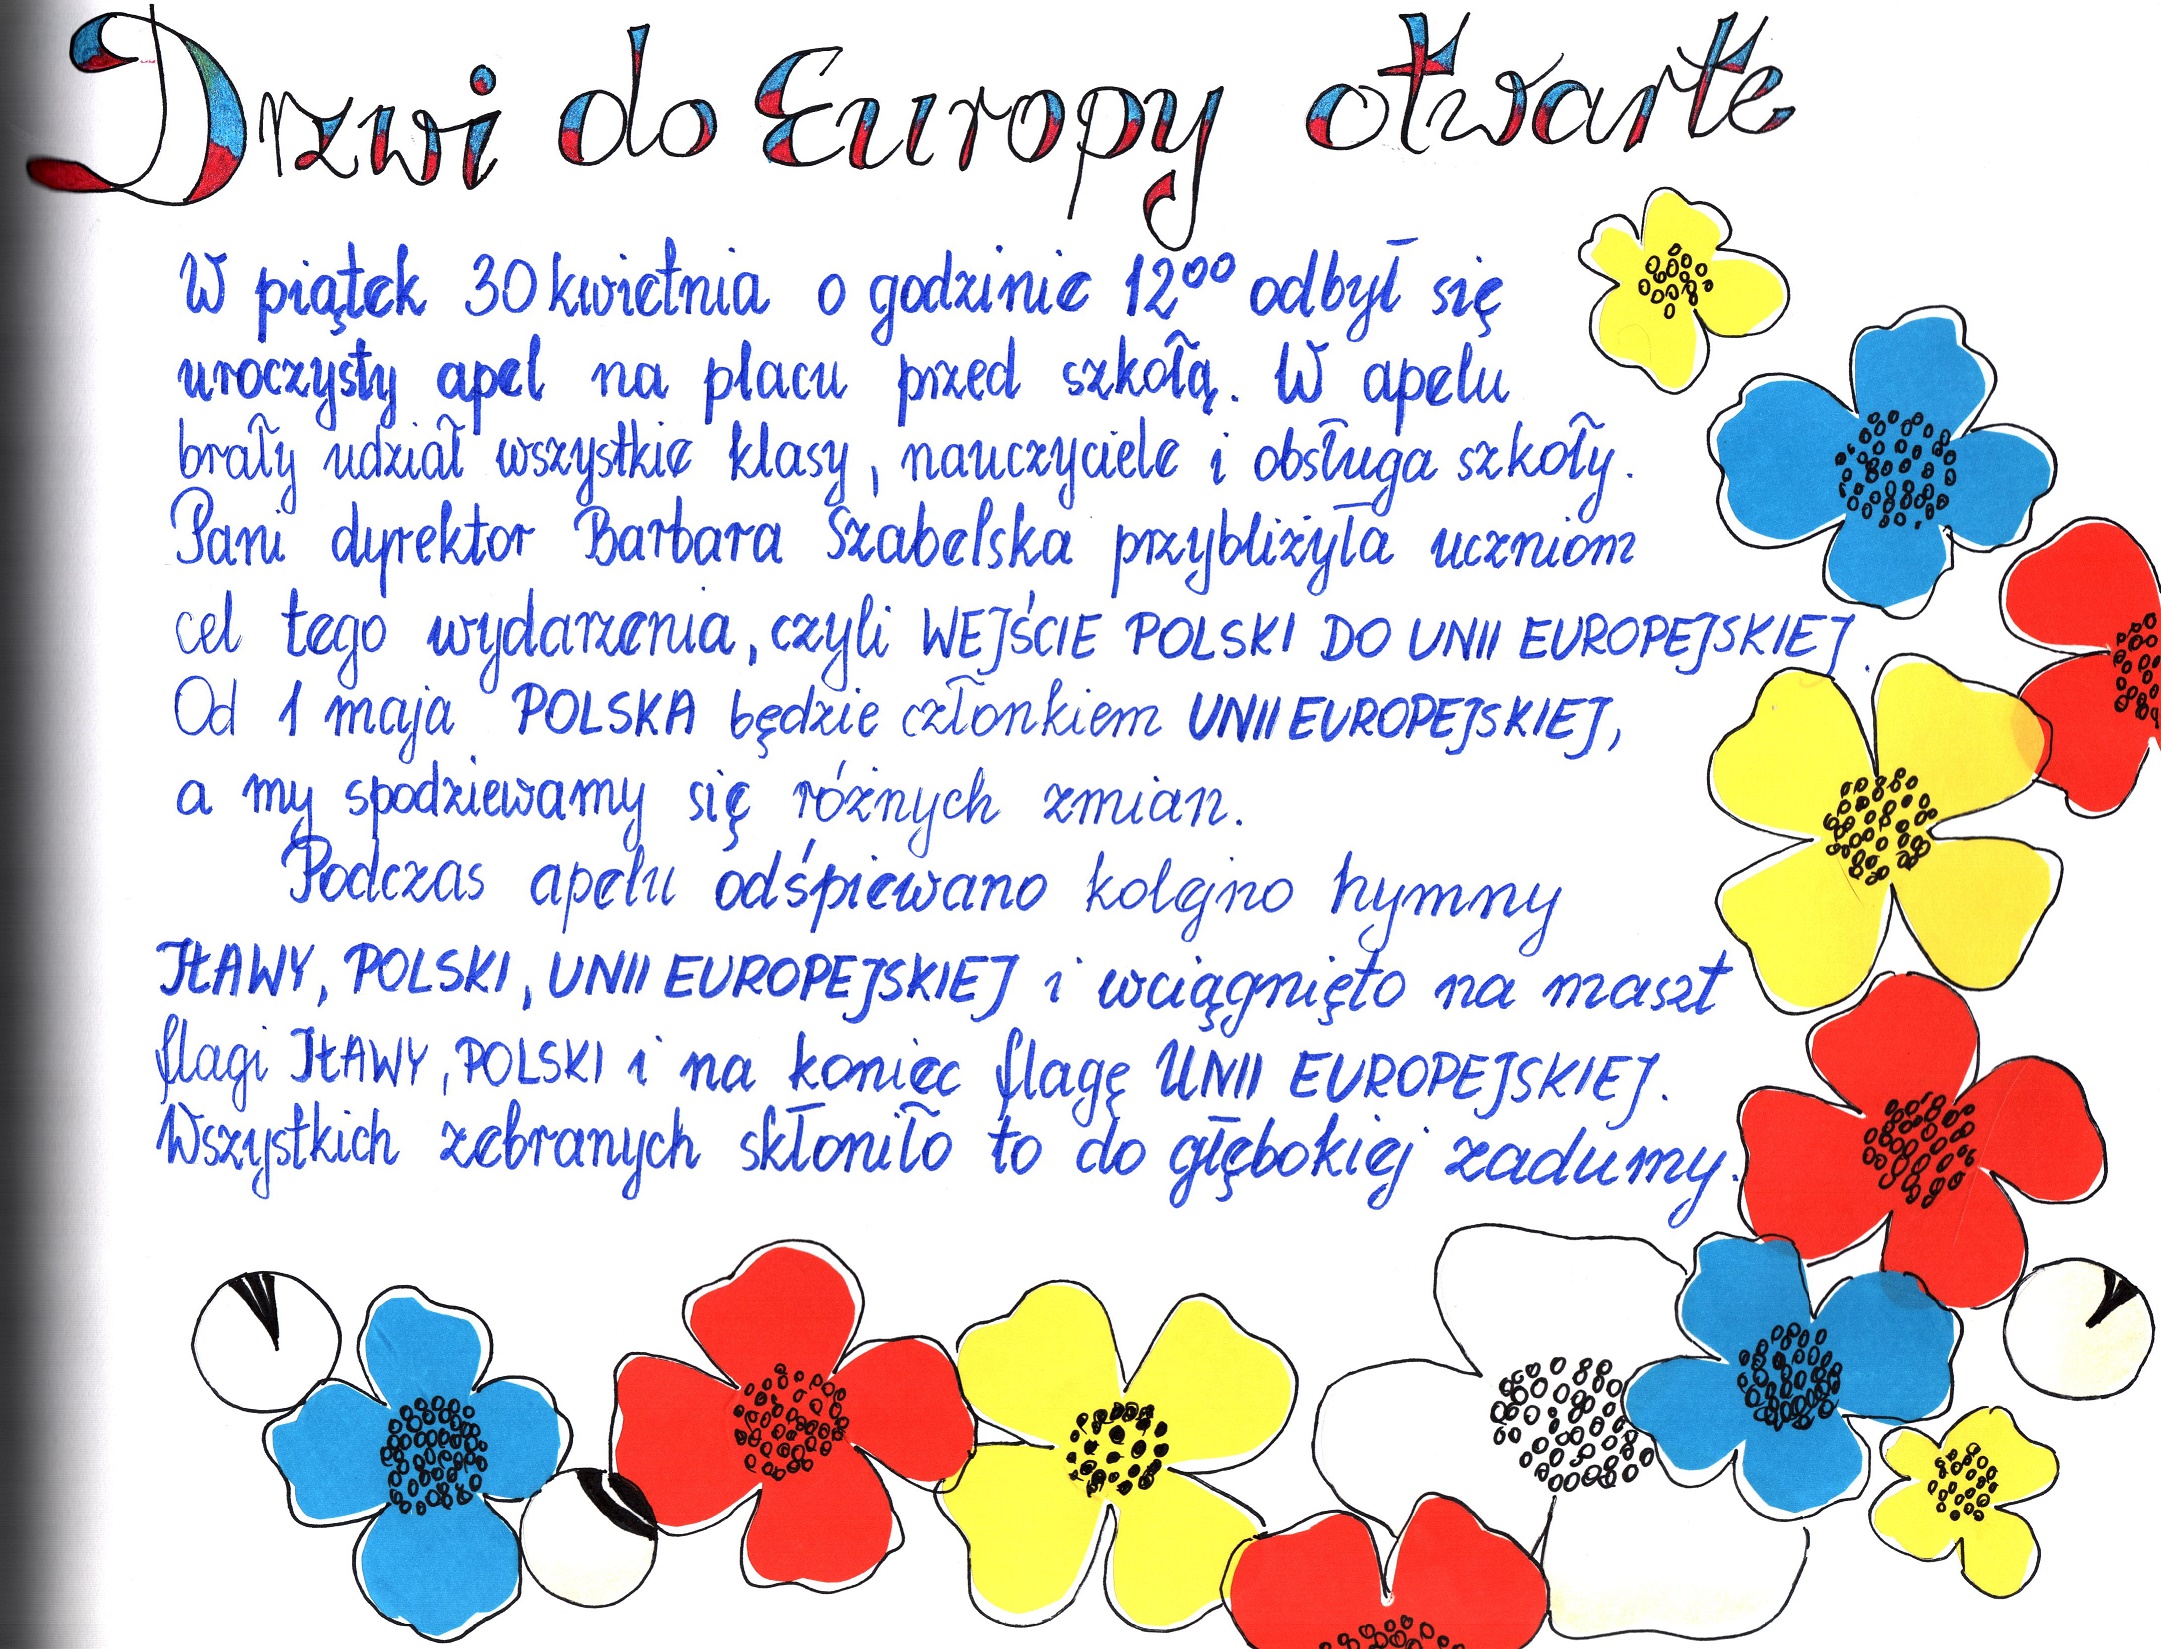 Drzwi do Europy otwarte
W piątek 30 kwietnia o godzinie 12⁰⁰ odbył się
uroczysty apel na placu przed szkołą. W apelu
brały udział wszystkie klasy, nauczyciele i obsługa szkoły.
Pani dyrektor Barbara Szabelska przybliżyła uczniom
cel tego wydarzenia, czyli WEJŚCIE POLSKI DO UNII EUROPEJSKIEJ.
Od 1 maja POLSKA będzie członkiem UNII EUROPEJSKIEJ,
a my spodziewamy się różnych zmian.
Podczas apelu odśpiewano kolejno hymny
IŁAWY, POLSKI, UNII EUROPEJSKIEJ i wciągnięto na maszt
flagi IŁAWY, POLSKI i na koniec flagę UNII EUROPEJSKIEJ.
Wszystkich zebranych skłoniło to do głębokiej zadumy.